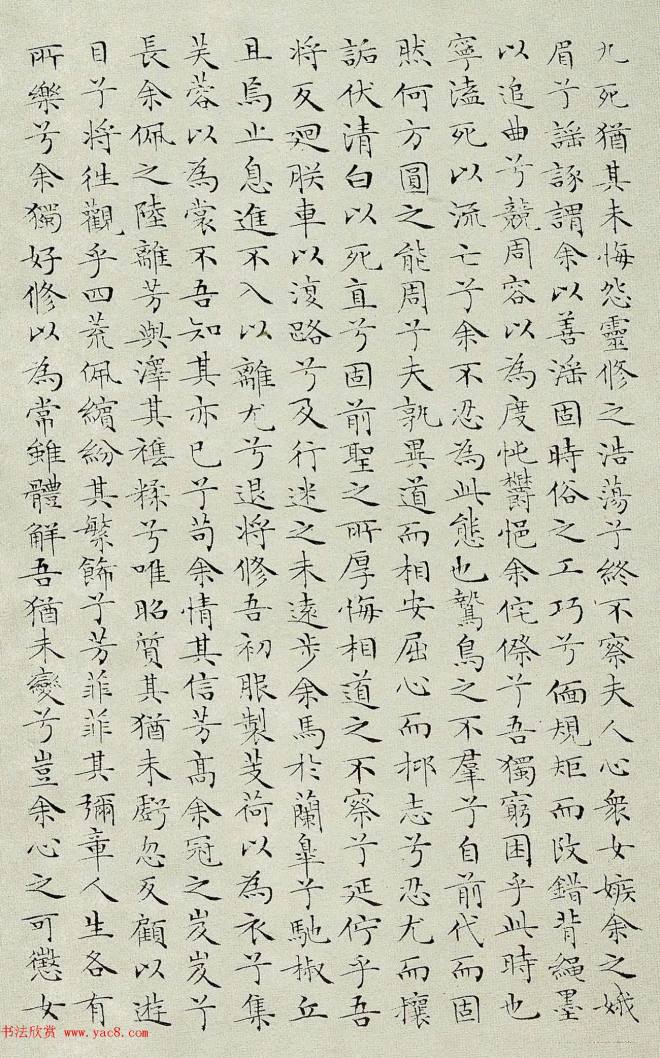 九死猶其未悔怨靈修之浩蕩兮終不察夫人心衆女嫉余之娥
眉兮謡諑謂余以善滛固時俗之工巧兮偭規矩而改錯背繩墨
以追曲兮競周容以為度忳欝悒余侘傺兮吾獨窮困乎此時也
寧溘死以流亡兮余不忍為此態也鷙鳥之不羣兮自前代而固
然何方圓之能周兮夫孰異道而相安屈心而抑志兮忍尤而攘
詬伏清白以死直兮固前聖之所厚悔相道之不察兮延佇乎吾
将反廻朕車以復路兮及行迷之未遠步余馬於蘭臯兮馳椒丘
且焉止息進不入以離尤兮退将修吾初服製芰荷以為衣兮集
芙蓉以為裳不吾知其亦已兮苟余情其信芳髙余冠之岌岌兮
長余佩之陸離芳與澤其襍糅兮唯昭質其猶未虧忽反顧以遊
目兮将往觀乎四荒佩繽紛其繁飾兮芳菲菲其彌章人生各有
所樂兮余獨好修以為常雖體解吾猶未變兮豈余心之可懲女
书法欣赏 www.yac8.com